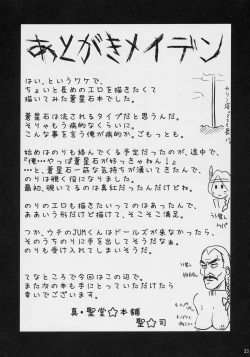 あとがきメイデン
はい、というワケで、
ちょいと長めのエロを描きたくて
描いてみた蒼星石本でした。
蒼星石は流されるタイプだと思うんだ。
そりゃもう病的なくらいに。
こんな事を言う俺が病的か、ごもっとも。
始めはのりも絡んでくる予定だったのが、途中で、
『俺…やっぱ蒼星石が好っきゃねん!』
…と、蒼星石一筋な気持ちが湧いてきたんで、
のりは覗く役になりました。
最初、覗いてるのは真紅だったんだけどね。
のりのエロも描きたいってのはあったんで、
ああいう形だけど描けて、そこそこ満足。
つか、ウチのJUMくんはドールズが来なかったら、
そのうちのりに手を出してそうだなぁ。
のりも受け入れてしまいそうだ。
てなところで今回はこの辺で。
また次の本も手にとっていただけたら
幸いでございます。
真・聖堂☆本舗
聖☆司